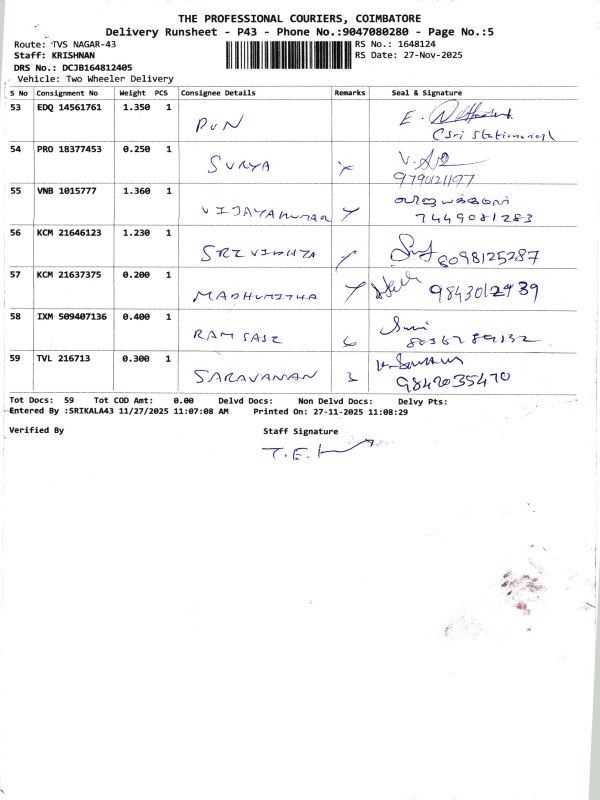 THE PROFESSIONAL COURIERS, COIMBATORE
Delivery Runsheet - P43 - Phone No.:9047080280 - Page No.:5
Route: TVS NAGAR-43
RS No.: 1648124
Staff: KRISHNAN
RS Date: 27-Nov-2025
DRS No.: DCJB164812405
Vehicle: Two Wheeler Delivery
S No Consignment No Weight PCS Consignee Details Remarks Seal & Signature
53 EDQ 14561761 1.350 1 PON E.
54 PRO 18377453 0.250 1 SURYA
9790121197
55 VNB 1015777 1.360 1 VIJAYAKUMAR
7449081283
56 KCM 21646123 1.230 1 SRIVIDHYA
8098125287
57 KCM 21637375 0.200 1 MADHUMITHA 9843012939
58 IXM 509407136 0.400 1 RAM SASI
59 TVL 216713 0.300 1 SARAVANAN
9842035470
Tot Docs: 59 Tot COD Amt: 0.00 Delvd Docs: Non Delvd Docs: Delvy Pts:
Entered By :SRIKALA43 11/27/2025 11:07:08 AM Printed On: 27-11-2025 11:08:29
Verified By Staff Signature